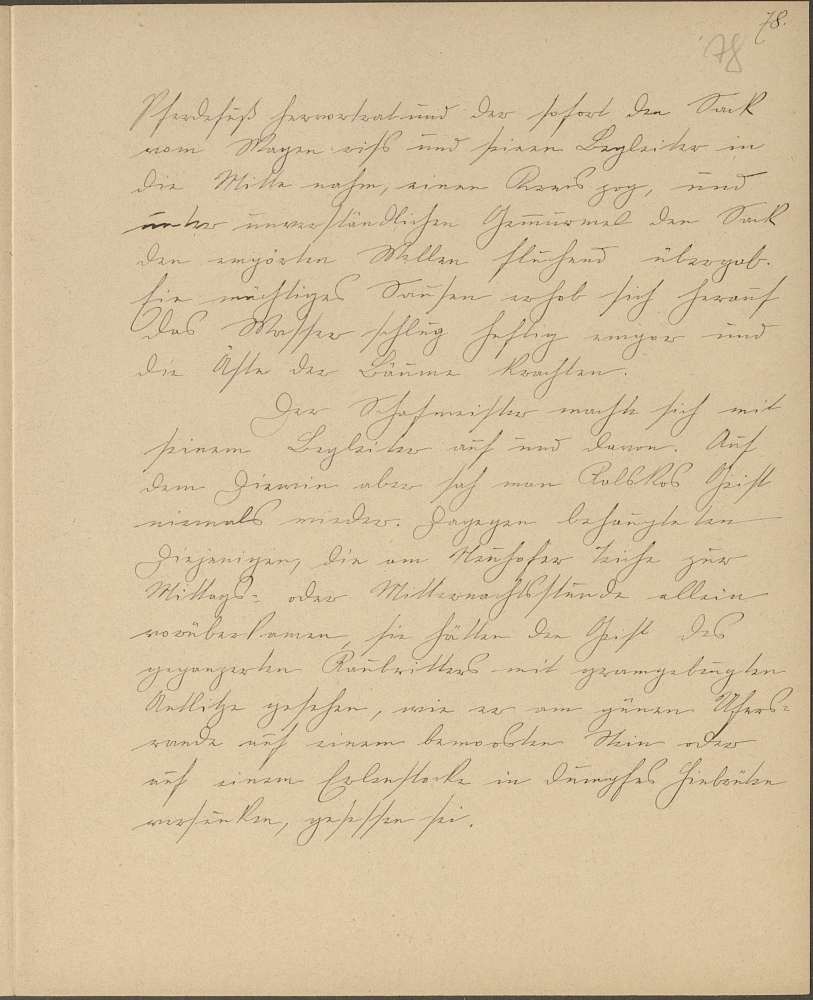 78.
78
Pferdefuß hervortrat und der sofort den Sack
vom Wagen riß und seinen Begleiter in
die Mitte nahm, einen Kreis zog, und
unter unverständlichen Gemurmel den Sack
den empörten Wellen fluchend übergab.
Ein mächtiges Sausen erhob sich herauf
Das Wasser schlug heftig empor und
die Äste der Bäume krachten.
Der Schafmeister machte sich mit
seinem Begleiter auf und davon. Auf
dem Ziemin aber sah man Kolskos Geist
niemals wieder. Dagegen behaupteten
Diejenigen, die am Neuhofer Teiche zur
Mittags- oder Mitternachtsstunde allein
vorüberkamen, sie hätten den Geist des
gepanzerten Raubritters mit gramgebeugten
Antlitze gesehen, wie er am günen Ufers-
rande auf einem bemoosten Stein oder
auf einem Erlenstocke in dumpfes Hinbrüten
versunken, gesessen sei.